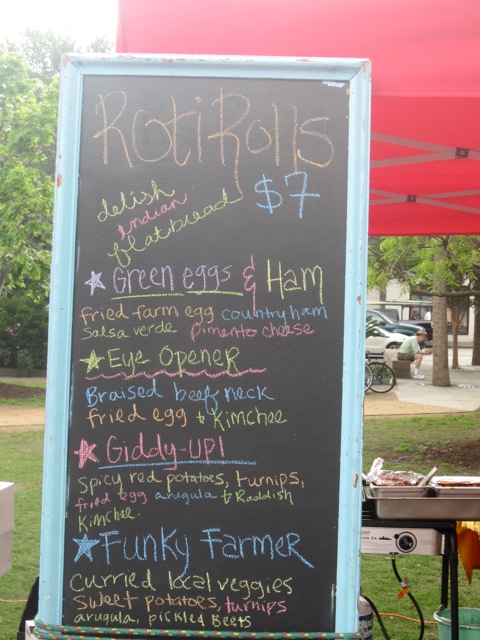 Roti Rolls
$7
delish
indian
flatbread
Green eggs & Ham
fried farm egg country ham
salsa verde pimento cheese
Eye Opener
Braised beef neck
fried egg & Kimchee
Giddy-UP!
spicy red potatoes, turnips,
fried egg arugula & Raddish
Kimchee.
Funky Farmer
curried local veggies
sweet potatoes, turnips
arugula, pickled Beets